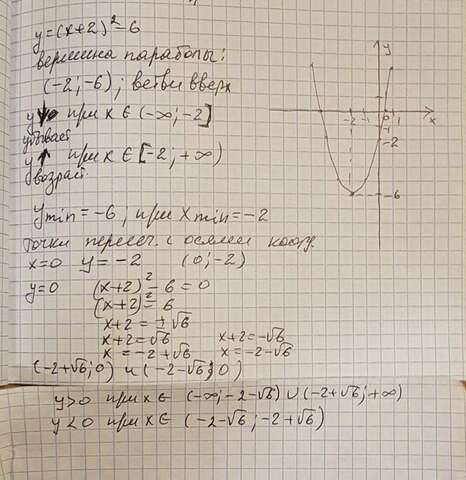 y=(x+2)²-6
вершина параболы:
(-2;-6); ветви вверх
y при x ∈ (-∞;-2]
убывает
y↑ при x ∈ [-2;+∞)
возраст.
y min = -6; при x min = -2
Точки пересеч. с осями коорд.
x=0 y=-2 (0;-2)
y=0 (x+2)²-6=0
(x+2)²=6
x+2=±√6
x+2=√6 x+2=-√6
x=-2+√6 x=-2-√6
(-2+√6;0) и (-2-√6;0)
y>0 при x ∈ (-∞;-2-√6)∪(-2+√6;+∞)
y<0 при x ∈ (-2-√6;-2+√6)
y
-2 -1 0 1 x
-1
-2
-6